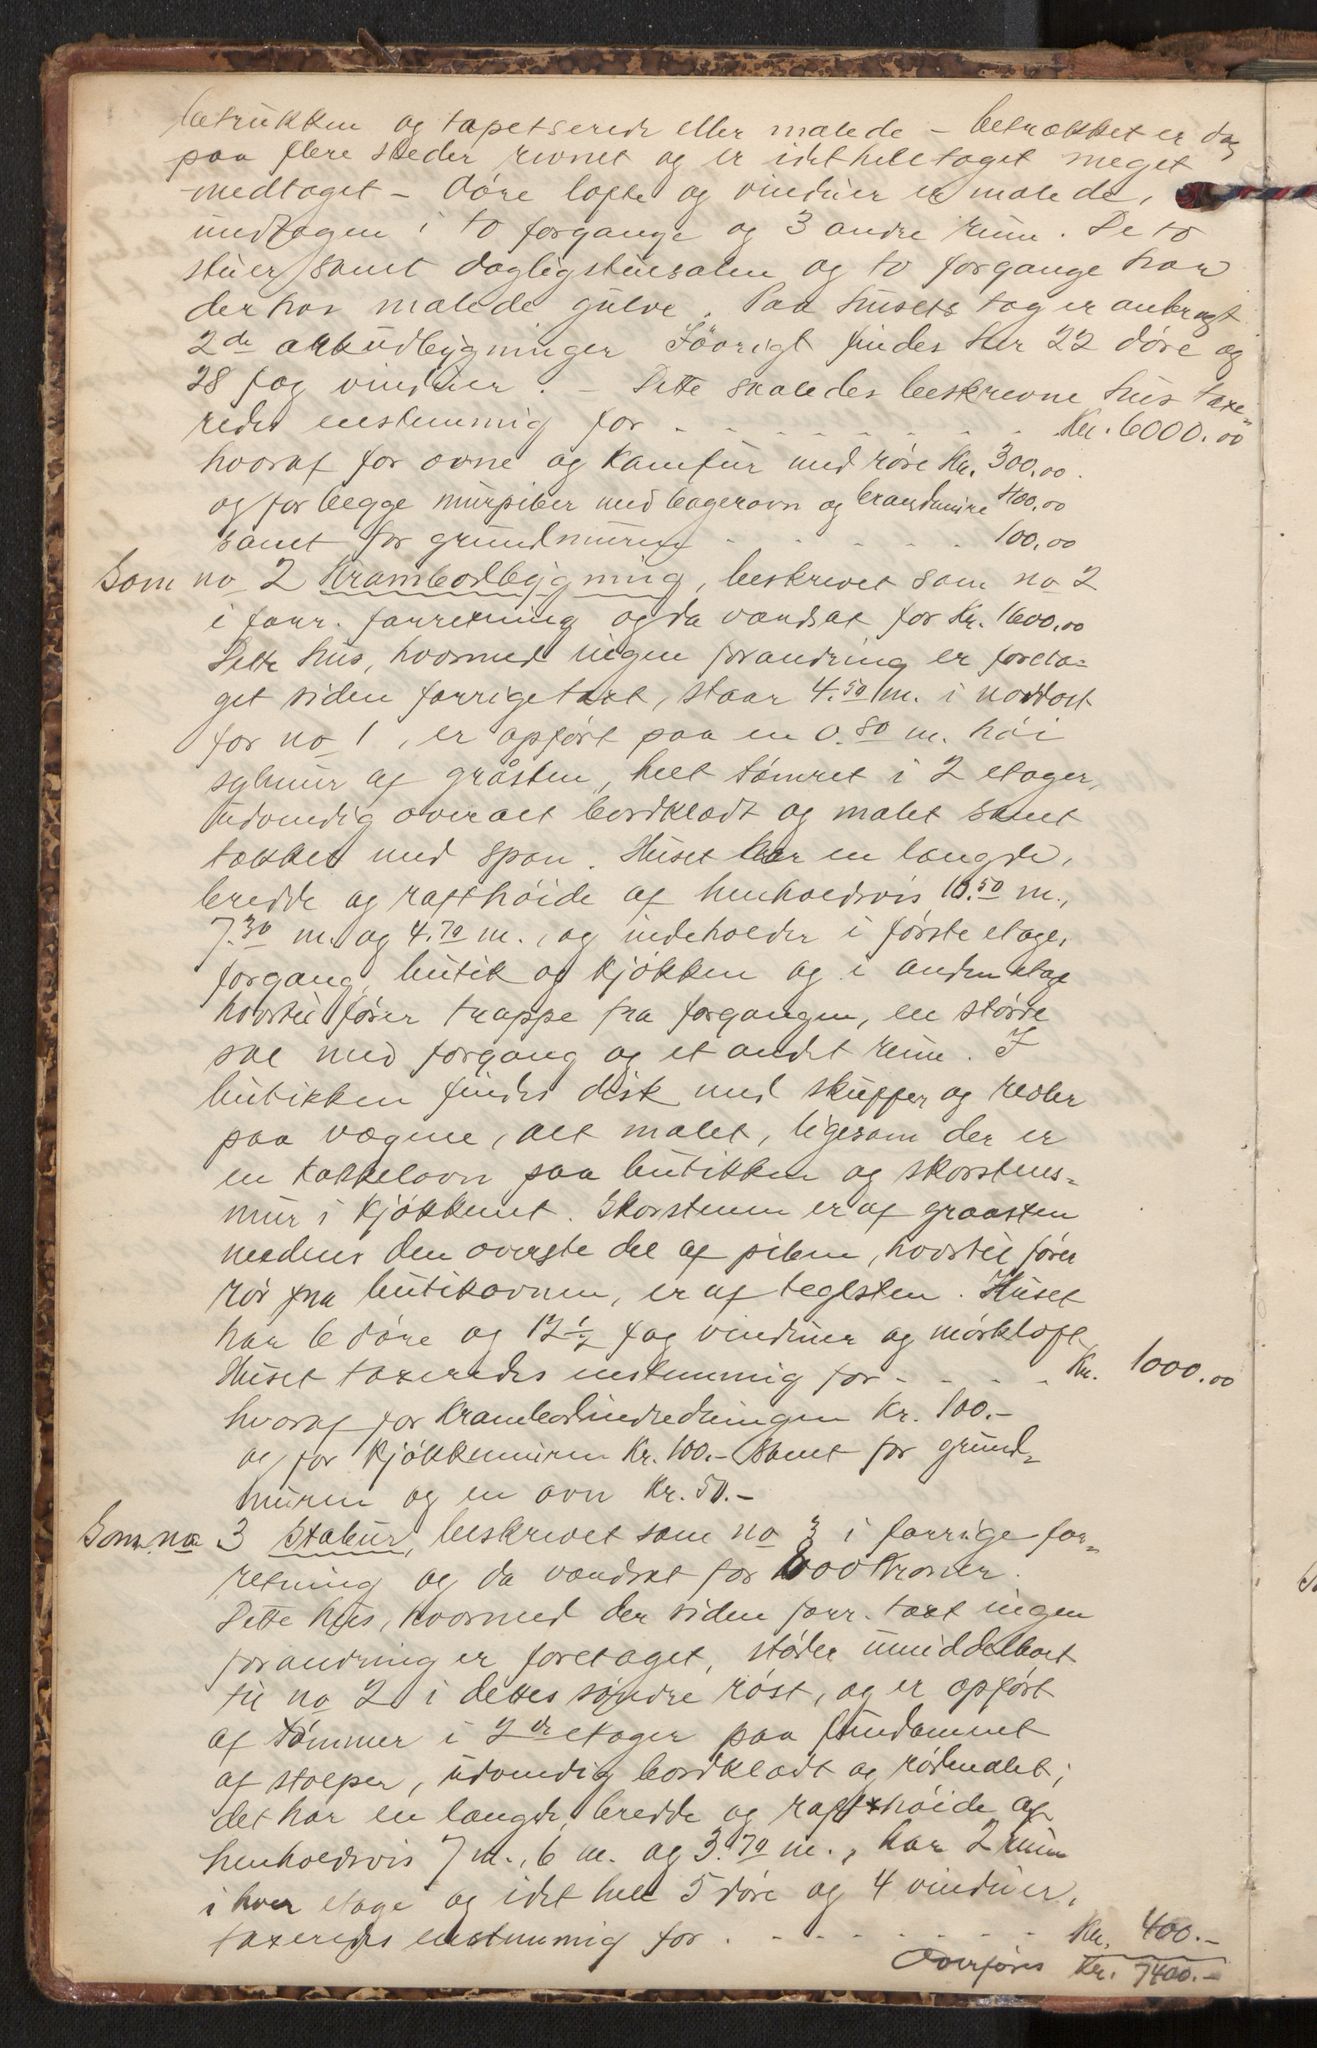 betrukken og tapetserede eller malede – betrækket er dog
paa flere steder revnet og er idetheletaget meget
medtaget – døre lofte og vinduer er malede,
undtagen i to forgange og 3 andre rum. De to
stuer samt dagligstuesalen og to forgange har
derhos malede gulve. Paa husets tag er anbragt
2de arkudbygninger Iøvrigt findes her 22 døre og
28 fag vinduer. – Dette saaledes beskrevne hus taxe=
redes enstemmig for - - - - - - - - Kr. 6000.00
hvoraf for ovne og kamfur med røre Kr. 300.00.
og for begge murpiber med bagerovn og brandmure 400.00
samt for grundmuren - - - - - - 100.00
Som no 2 Krambodbygning, beskrevet som no 2
i forr. forretning og da vandsat for Kr. 1600.00
Dette hus, hvormed ingen forandring er foreta=
get siden forrige taxt, staar 4.50 m. i nordost
for no 1, er opført paa en 0.80 m. høi
sylmur af gråsten, helt tømret i 2 etager,
udvendig overalt bordklædt og malet samt
tækket med spon. Huset har en længde,
bredde og rafthøide af henholdsvis 10.50 m.,
7.30 m. og 4.70 m., og indeholder i første etage,
forgang, butik og kjøkken og i anden etage
hvortil fører trappe fra forgangen, en større
sal med forgang og et andet rum. I
butikken findes disk med skuffer og reoler
paa vægene, alt malet, ligesom der er
en kakkelovn paa butikken og skorstens=
mur i kjøkkenet. Skorstenen er af graasten
medens den øverste del af piben, hvortil fører
rør fra butikovnen, er af teglsten. Huset
har 6 døre og 12 1/2 fag vinduer og mørkloft
Huset taxeredes enstemmig for - - - - Kr. 1000.00
hvoraf for krambodindredningen Kr. 100.–
og for kjøkkenmuren Kr. 100.– samt for grund=
muren og en ovn Kr. 50.–
Som no 3 Stabur, beskrevet som no 3 i forrige for=
retning og da vandsat for 800 Kroner.
Dette hus, hvormed der siden forr. taxt ingen
forandring er foretaget, støder umiddelbart
til no 2 i dettes søndre røst, og er opført
af tømmer i 2de etager paa fundament
af stolper, udvendig bordklædt og rødmalet;
det har en længde, bredde og rafthøide af
henholdsvis 7 m., 6 m. og 3.70 m., har 2 rum
i hver etage og idet hele 5 døre og 4 vinduer,
taxeredes enstemmig for - - - - - - - Kr. 400.–
Overføres Kr. 7400.–